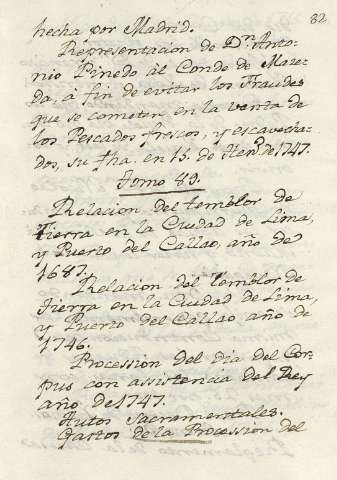 82
hecha por Madrid.
Representacion de Dn. Anto-
nio Pinedo al Conde de Mare-
da, á fin de evitar los Fraudes
que se cometen en la venta de
los Pescados frescos, y escavecha-
dos, su fha. en 15. de de 1747.
Tomo 89.
Relacion del temblor de
Tierra en la Ciudad de Lima,
y Puerto del Callao, año de
1687.
Relacion del temblor de
Tierra en la Ciudad de Lima,
y Puerto del Callao año de
1746.
Procession del dia del Cor-
pus con assistencia del Rey
año de 1747.
Autos Sacramentales.
Gastos de la Procession del